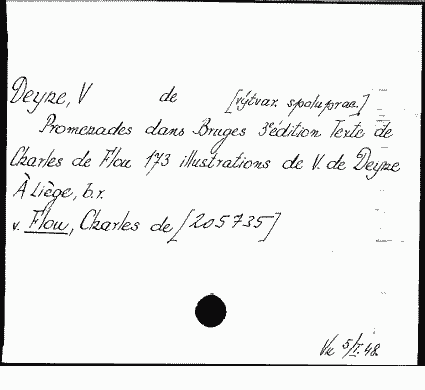 Deyne, V de [výtvar. spoluprac.]
Promenades dans Bruges 3ᵉ édition Texte de
Charles de Flou 173 illustrations de V. de Deyne
À Liège, b.r.
v. Flou, Charles de [205735]
Vu 5/II.48.